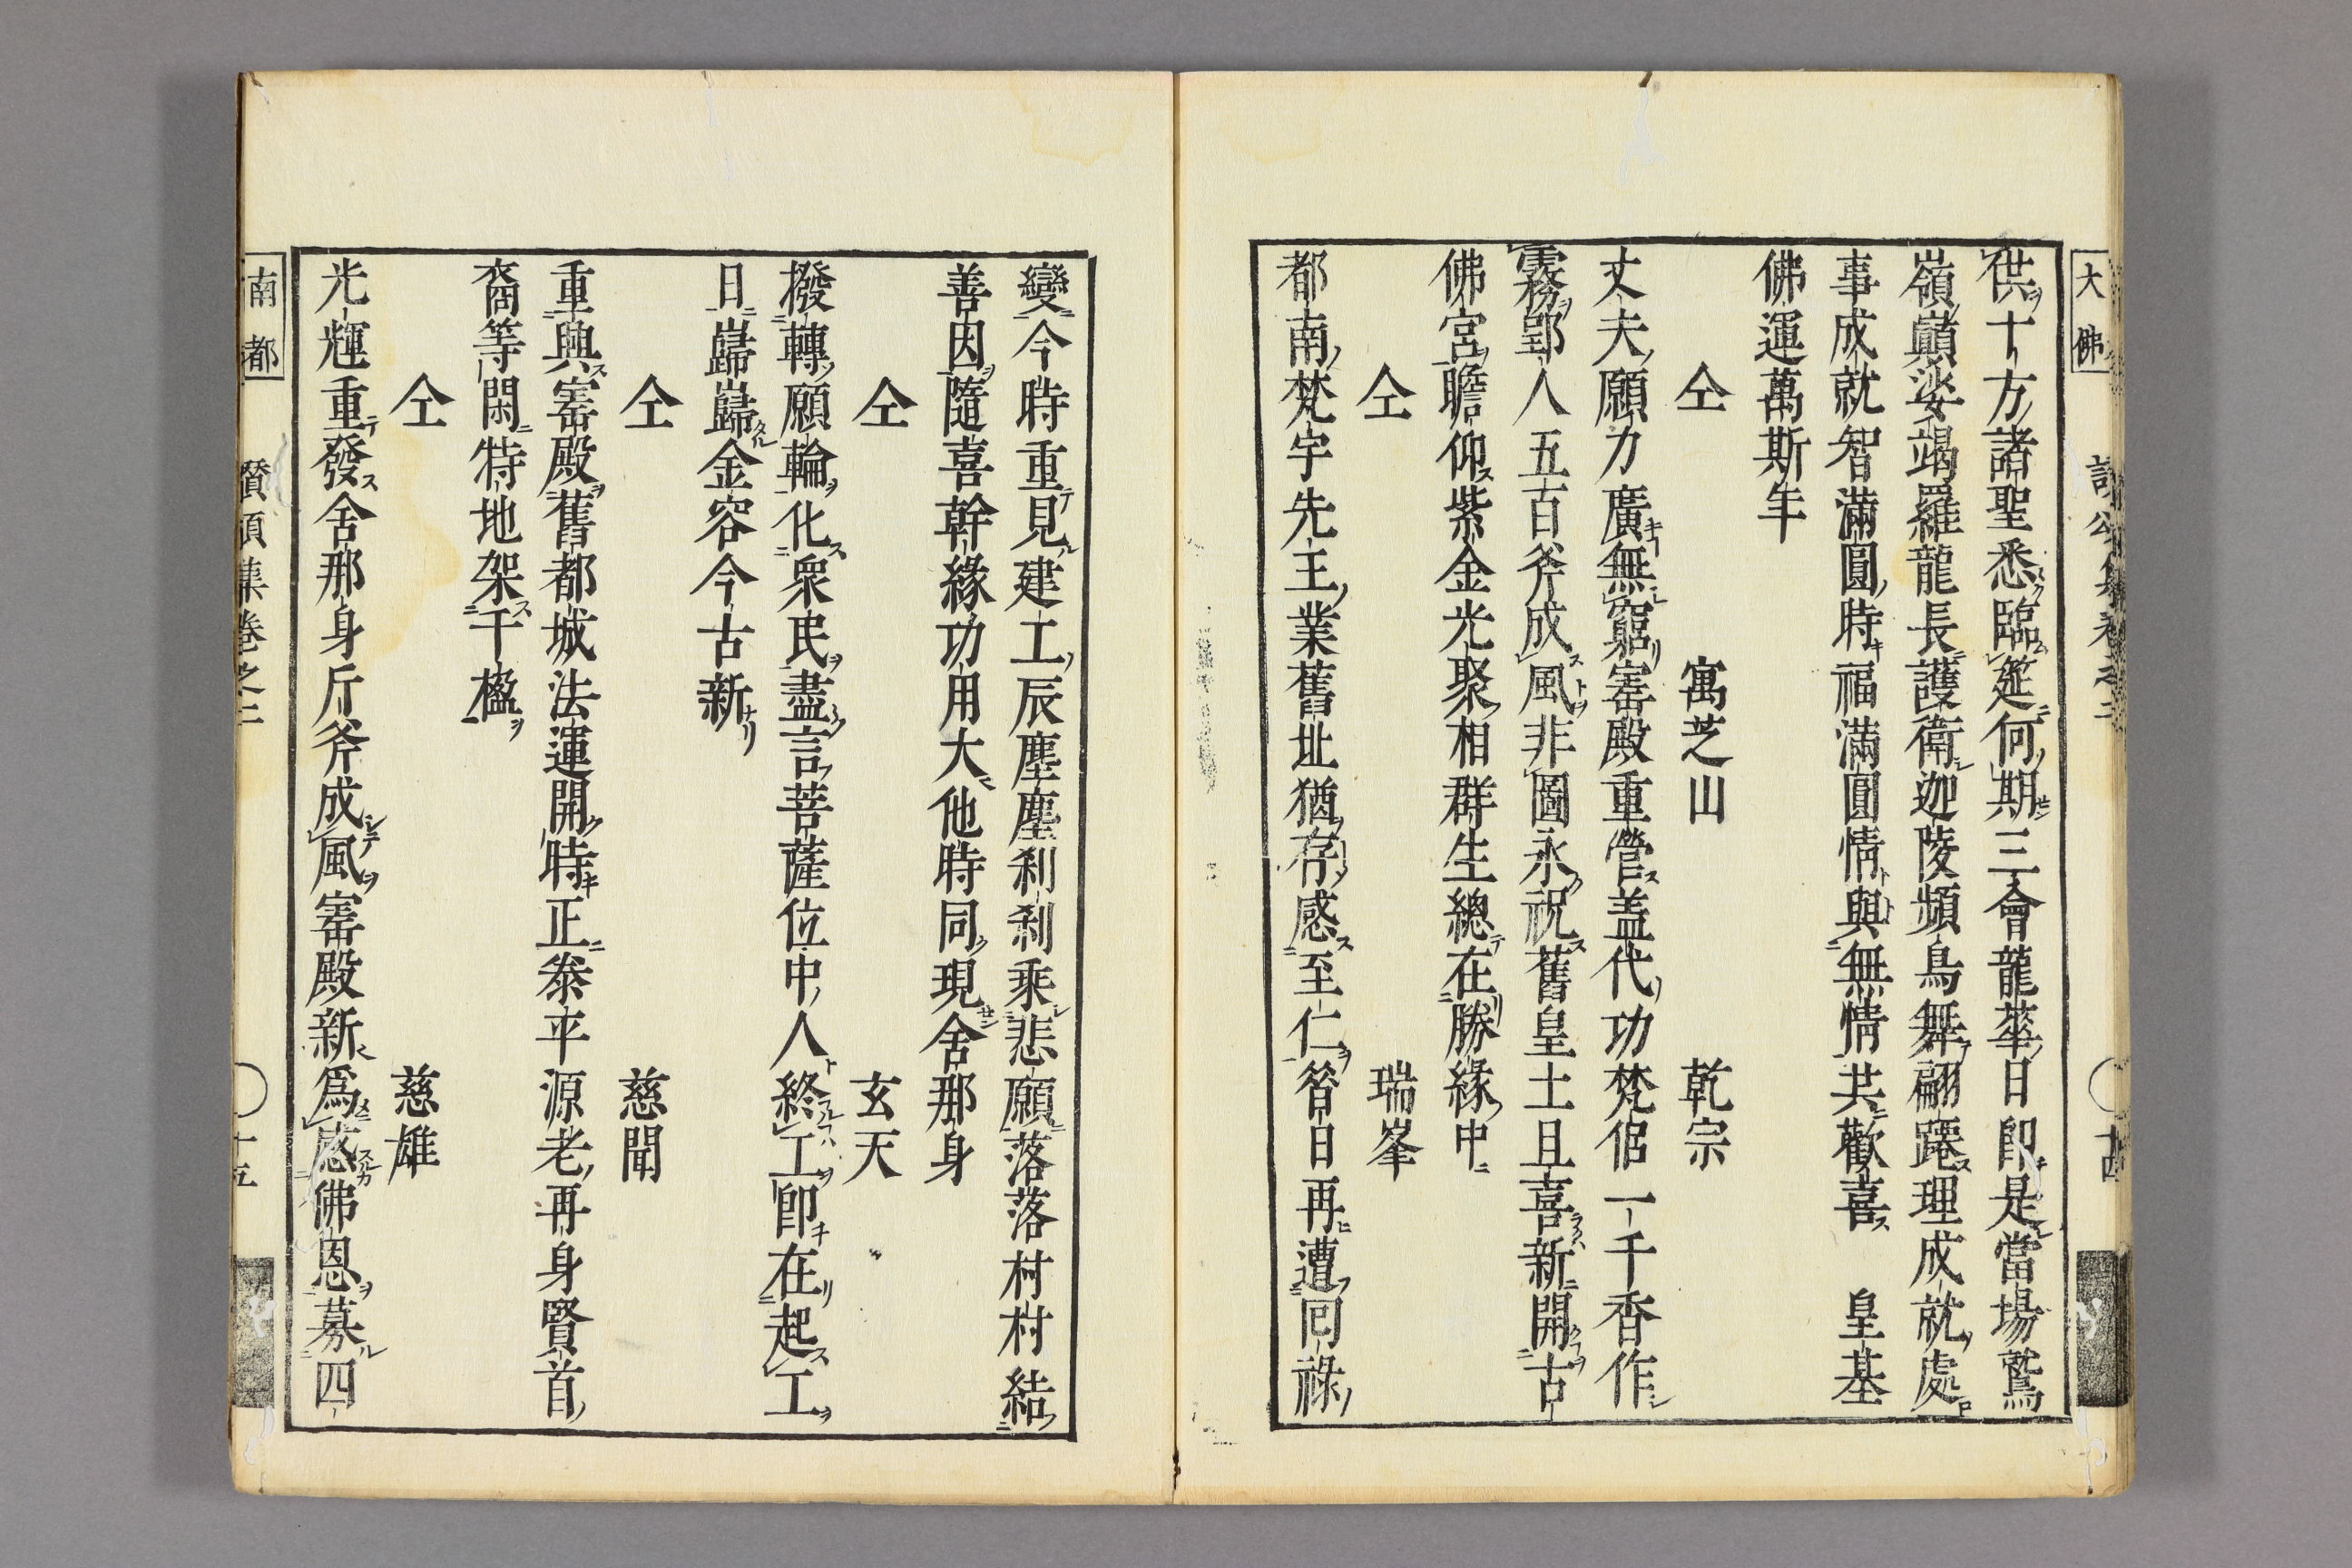 大佛
供十方諸聖悉臨筵何期三會龍華日卽是當場鷲
嶺巔娑竭羅龍長護衛迦陵頻鳥舞翩躚理成就處
事成就智滿圓時福滿圓情與無情共歡喜 皇基
佛運萬斯年
仝 寓芝山 乾宗
丈夫願力廣無窮寚殿重營盖代功梵侶一千香作
霧郢人五百斧成風非圖永祝舊皇土且喜新開古
佛宮瞻仰紫金光聚相群生總在勝緣中
仝 瑞峯
都南梵宇先王業舊址猶存感至仁昝日再遭囘祿
變今時重見建工辰塵塵刹刹乘悲願落落村村結
善因隨喜幹緣功用大他時同現舍那身
仝 玄天
撥轉願輪化衆民盡言菩薩位中人終工卽在起工
日歸歸金容今古新
仝 慈聞
重興寚殿舊都城法運開時正泰平源老再身賢首
裔等閑特地架千楹
仝 慈雄
光輝重發舍那身斤斧成風寚殿新爲感佛恩募四
南都 讃頌集卷之二 十五